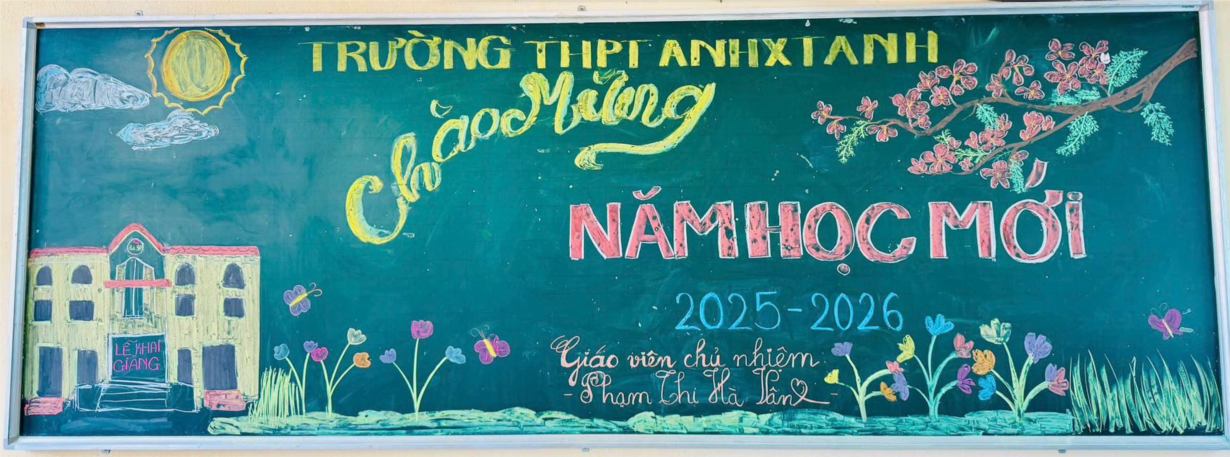 TRƯỜNG THPT ANHXTANH
Chào Mừng
NĂM HỌC MỚI
2025-2026
Giáo viên chủ nhiệm
- Phạm Thi Hà Vân -
LỄ KHAI
GIẢNG